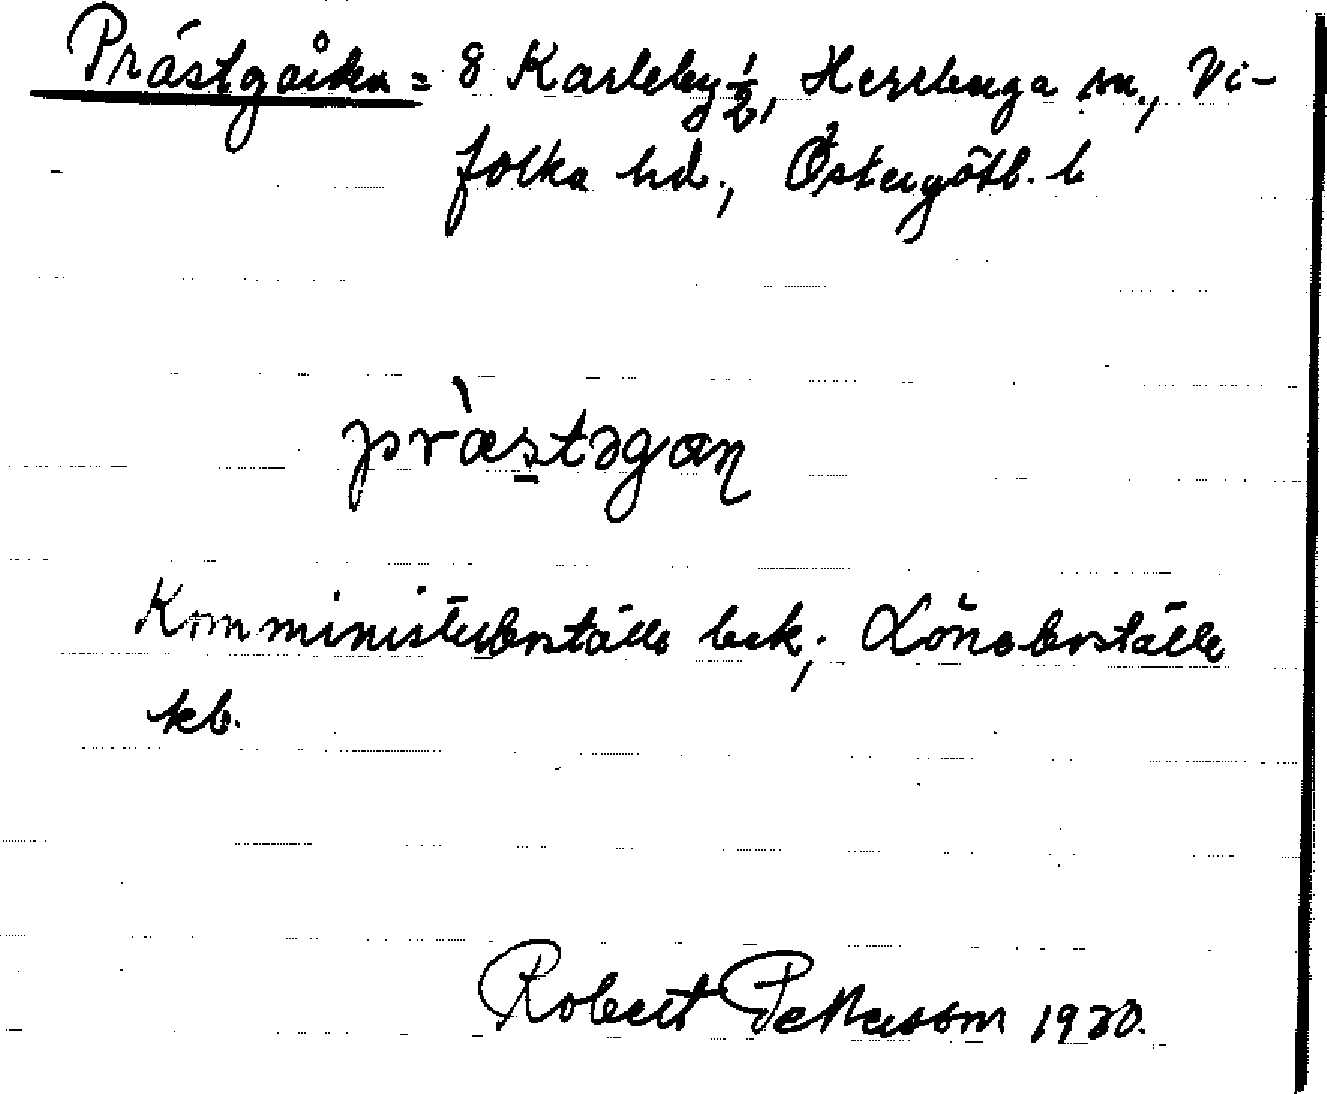 Prästgården = 8 Karleby ½, Herrberga sn., Vi-
folka hd., Östergötl. l.
präs̱təgaɳ
Komministerboställe bek.; Löneboställe
kb.
Robert Pettersson 1920.